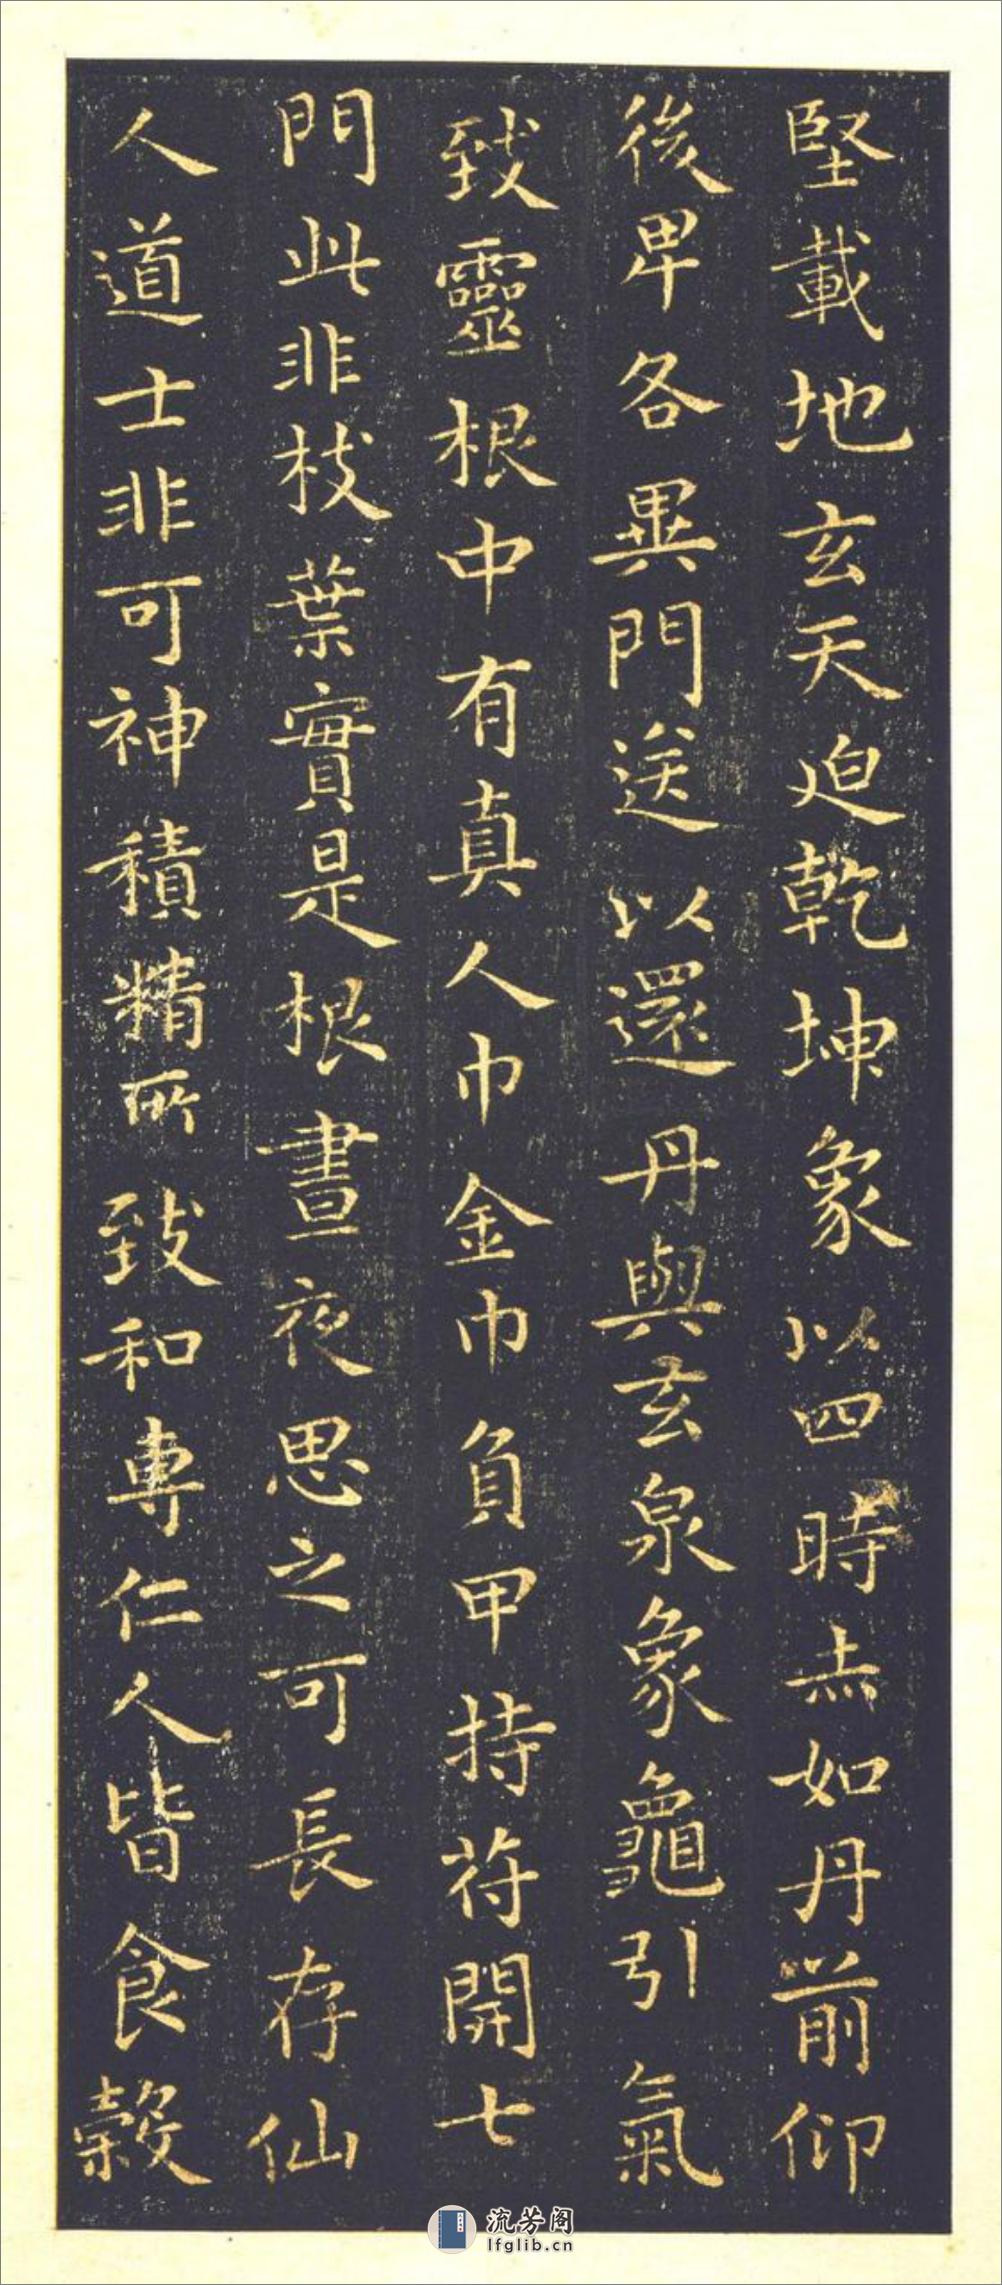 堅載地玄天迫乾坤象以四時赤如丹前仰
後卑各異門送以還丹與玄泉象龜引氣
致靈根中有真人巾金巾負甲持符開七
門此非枝葉實是根晝夜思之可長存仙
人道士非可神積精所致和專仁人皆食穀
流芳阁
lfglib.cn